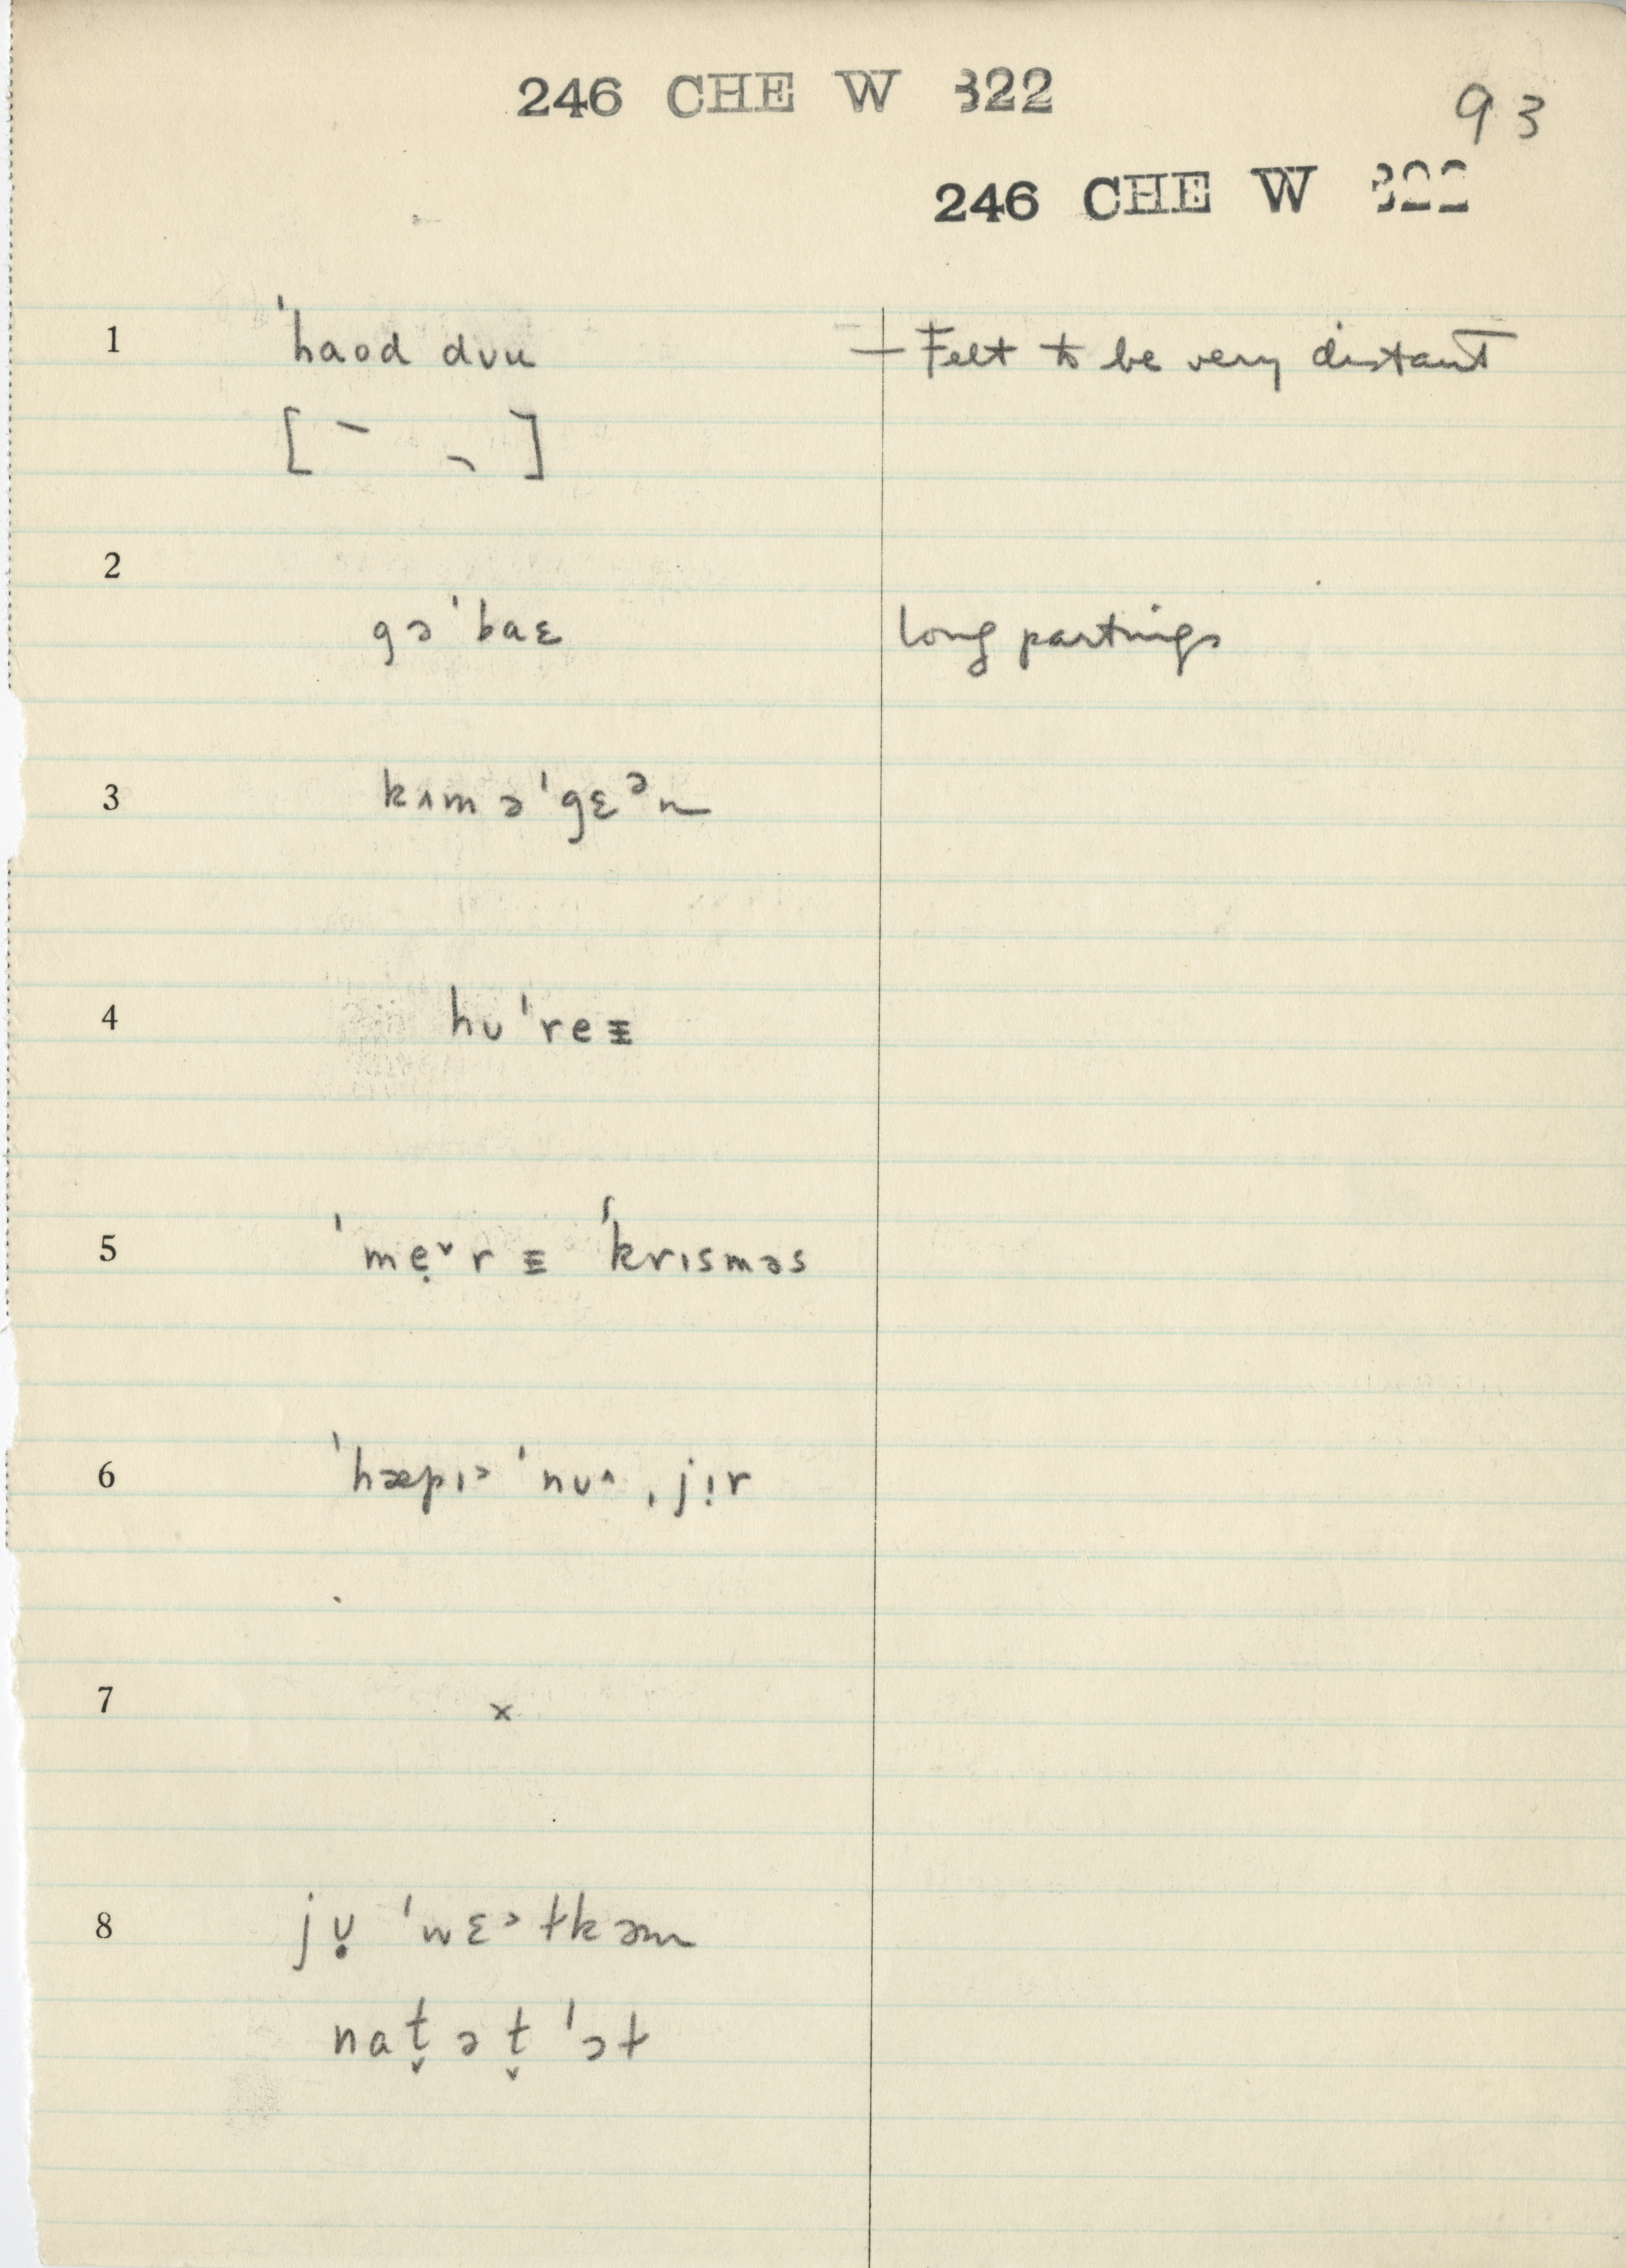 246 CHE W 322
93
246 CHE W 322
1 ˈhaod dʊu — Felt to be very distant
[ ]
2
gəˈbaɛ long partings
3 kʌməˈgɛᵊn
4 hʊˈreᵻ
5 ˈmẹ˅rᵻ ˈkrɪsməs
6 ˈhæpɪ˃ ˈnʊ^ ˌjɪ̣r
7 ×
8 jʊ̣ ˈwɛ˃ɫkəm
nat̬ət̬ ˈɔɫ